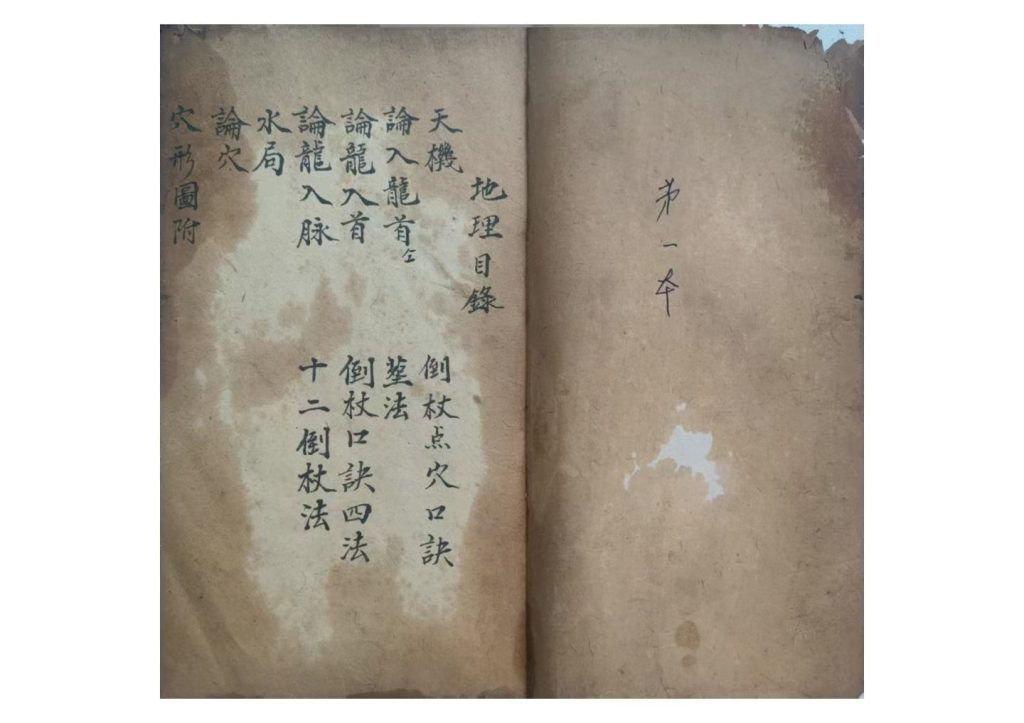 第一本
地理目錄
天機 倒杖点穴口訣
論入龍首 塟法
論龍入首 倒杖口訣四法
論龍入脉 十二倒杖法
水局
論穴
穴形圖附